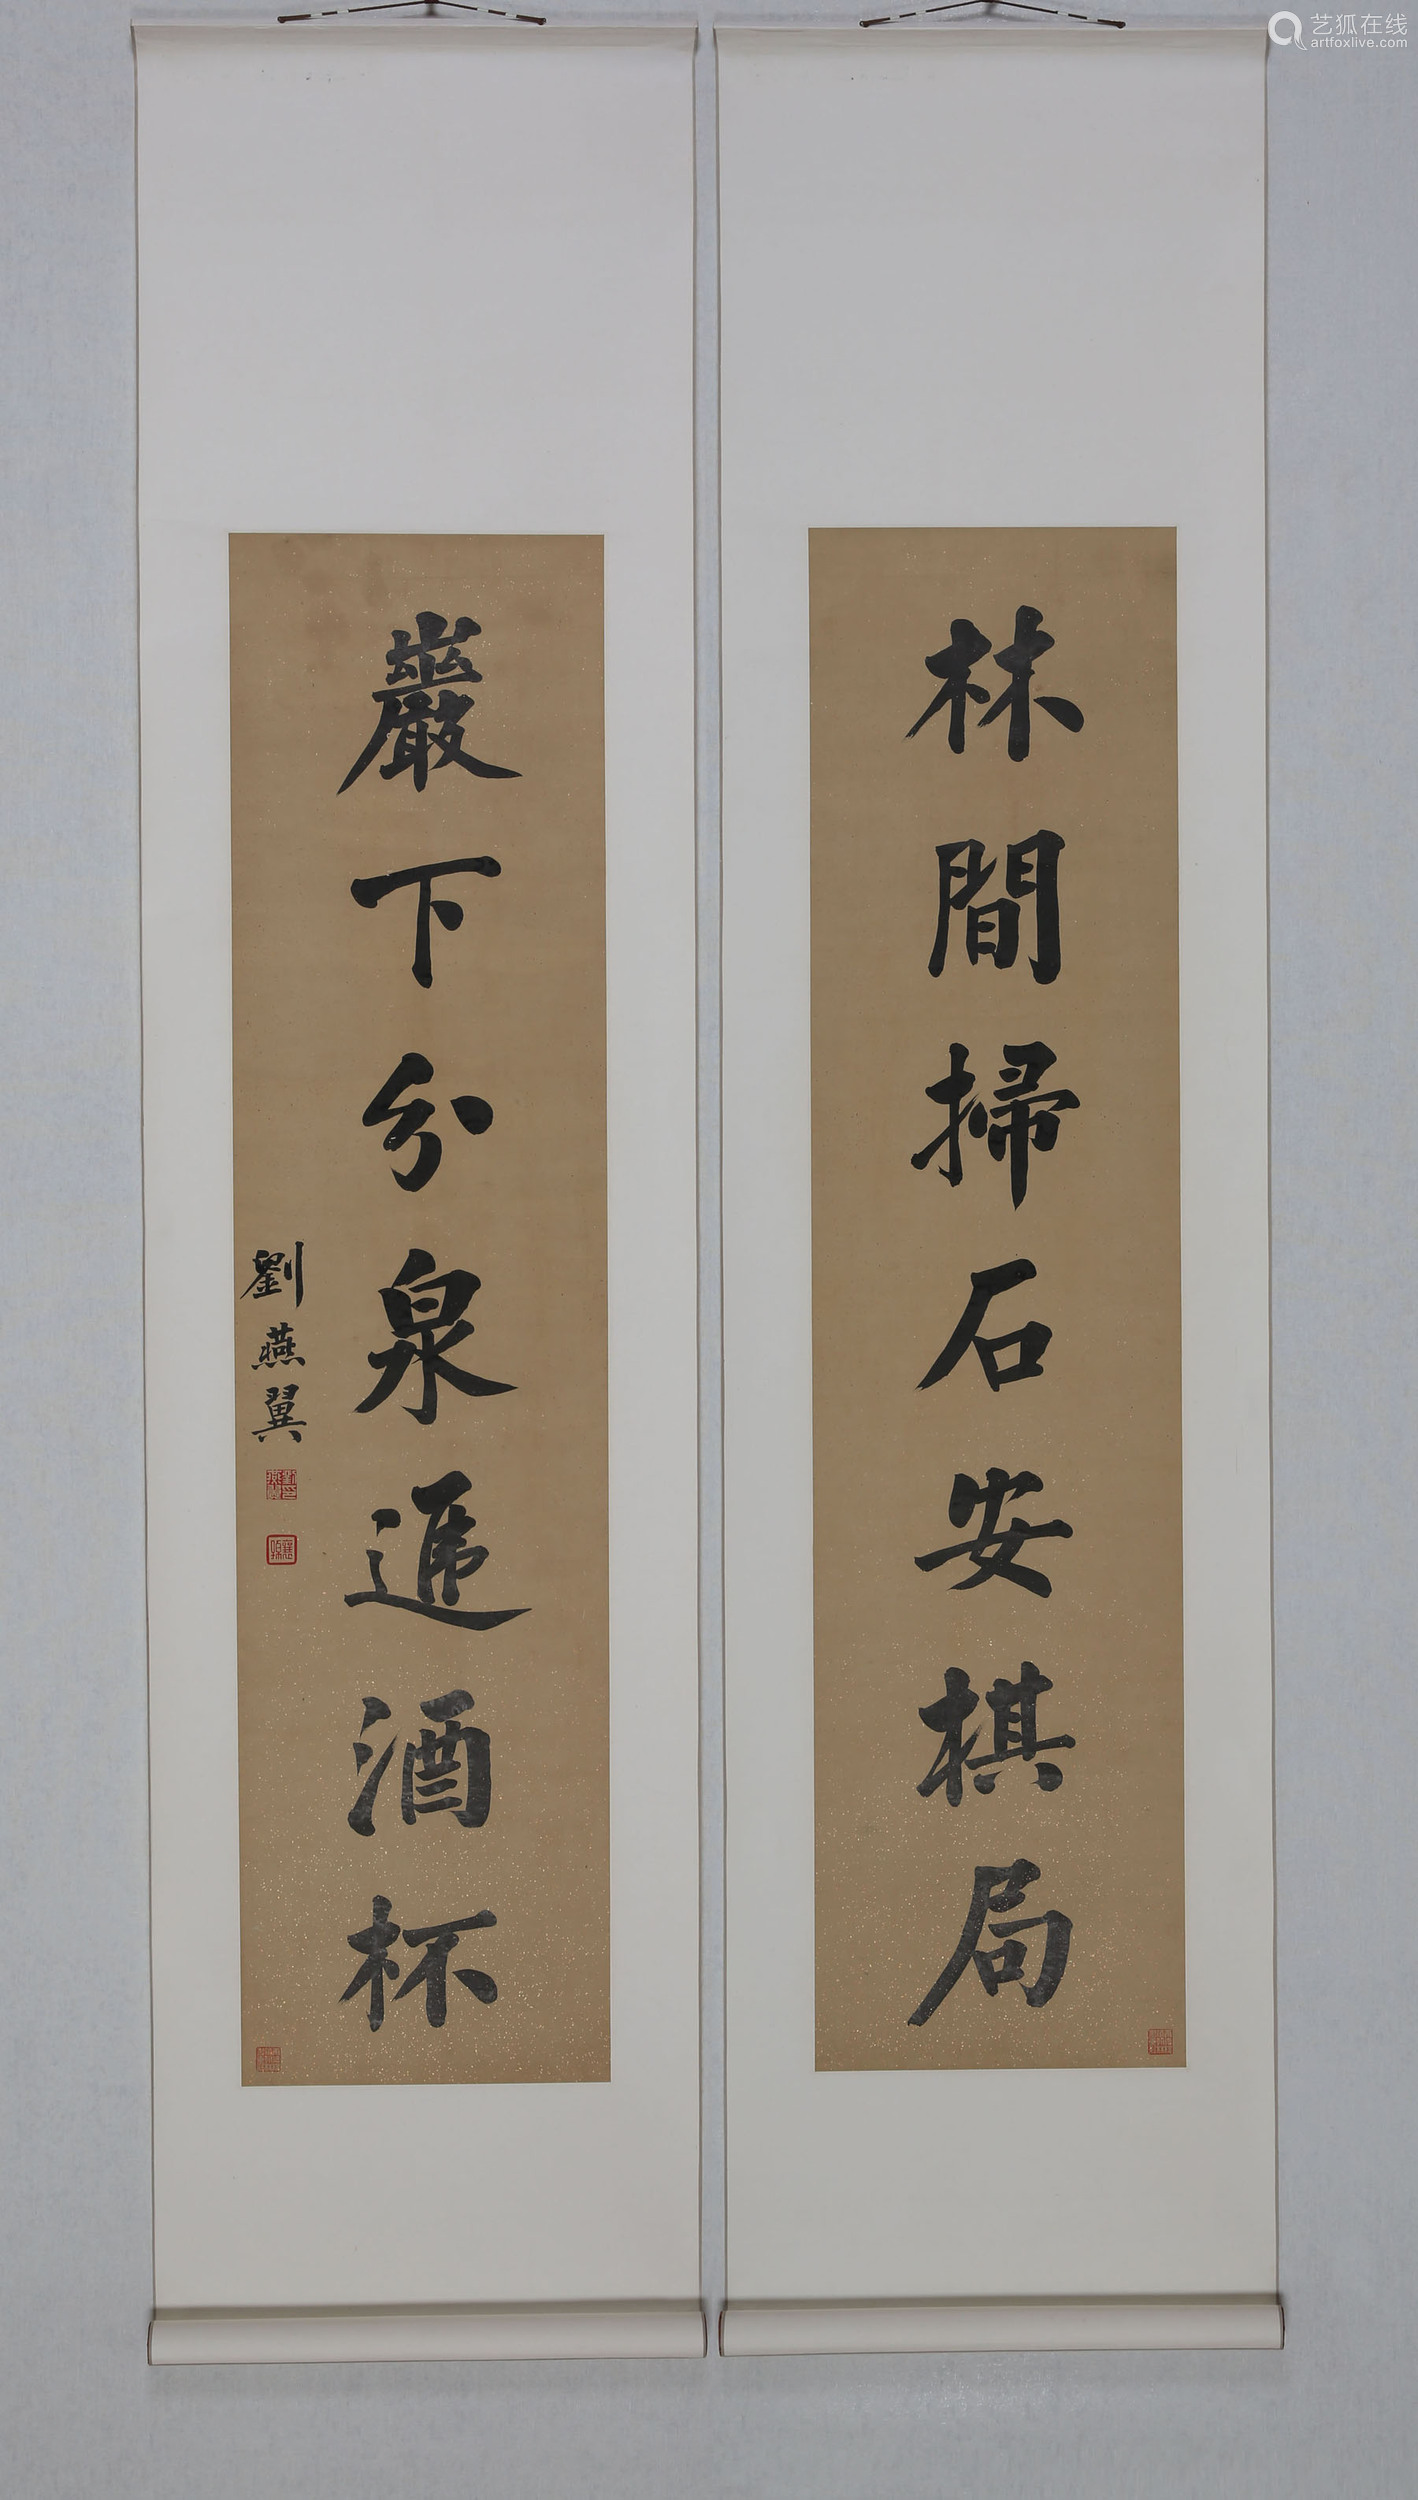 艺狐在线
artfoxlive.com
林間掃石安棋局
巖下分泉遞酒杯
劉燕翼